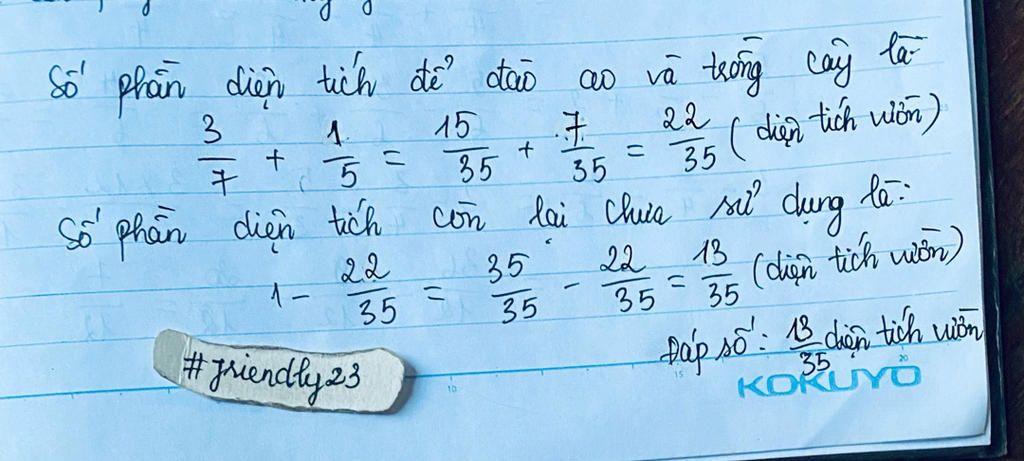 Số phần diện tích để đào ao và trồng cây là:
3/7 + 1/5 = 15/35 + 7/35 = 22/35 (diện tích vườn)
Số phần diện tích còn lại chưa sử dụng là:
1 - 22/35 = 35/35 - 22/35 = 13/35 (diện tích vườn)
Đáp số: 13/35 diện tích vườn
#friendly23
10 15 20
KOKUYO